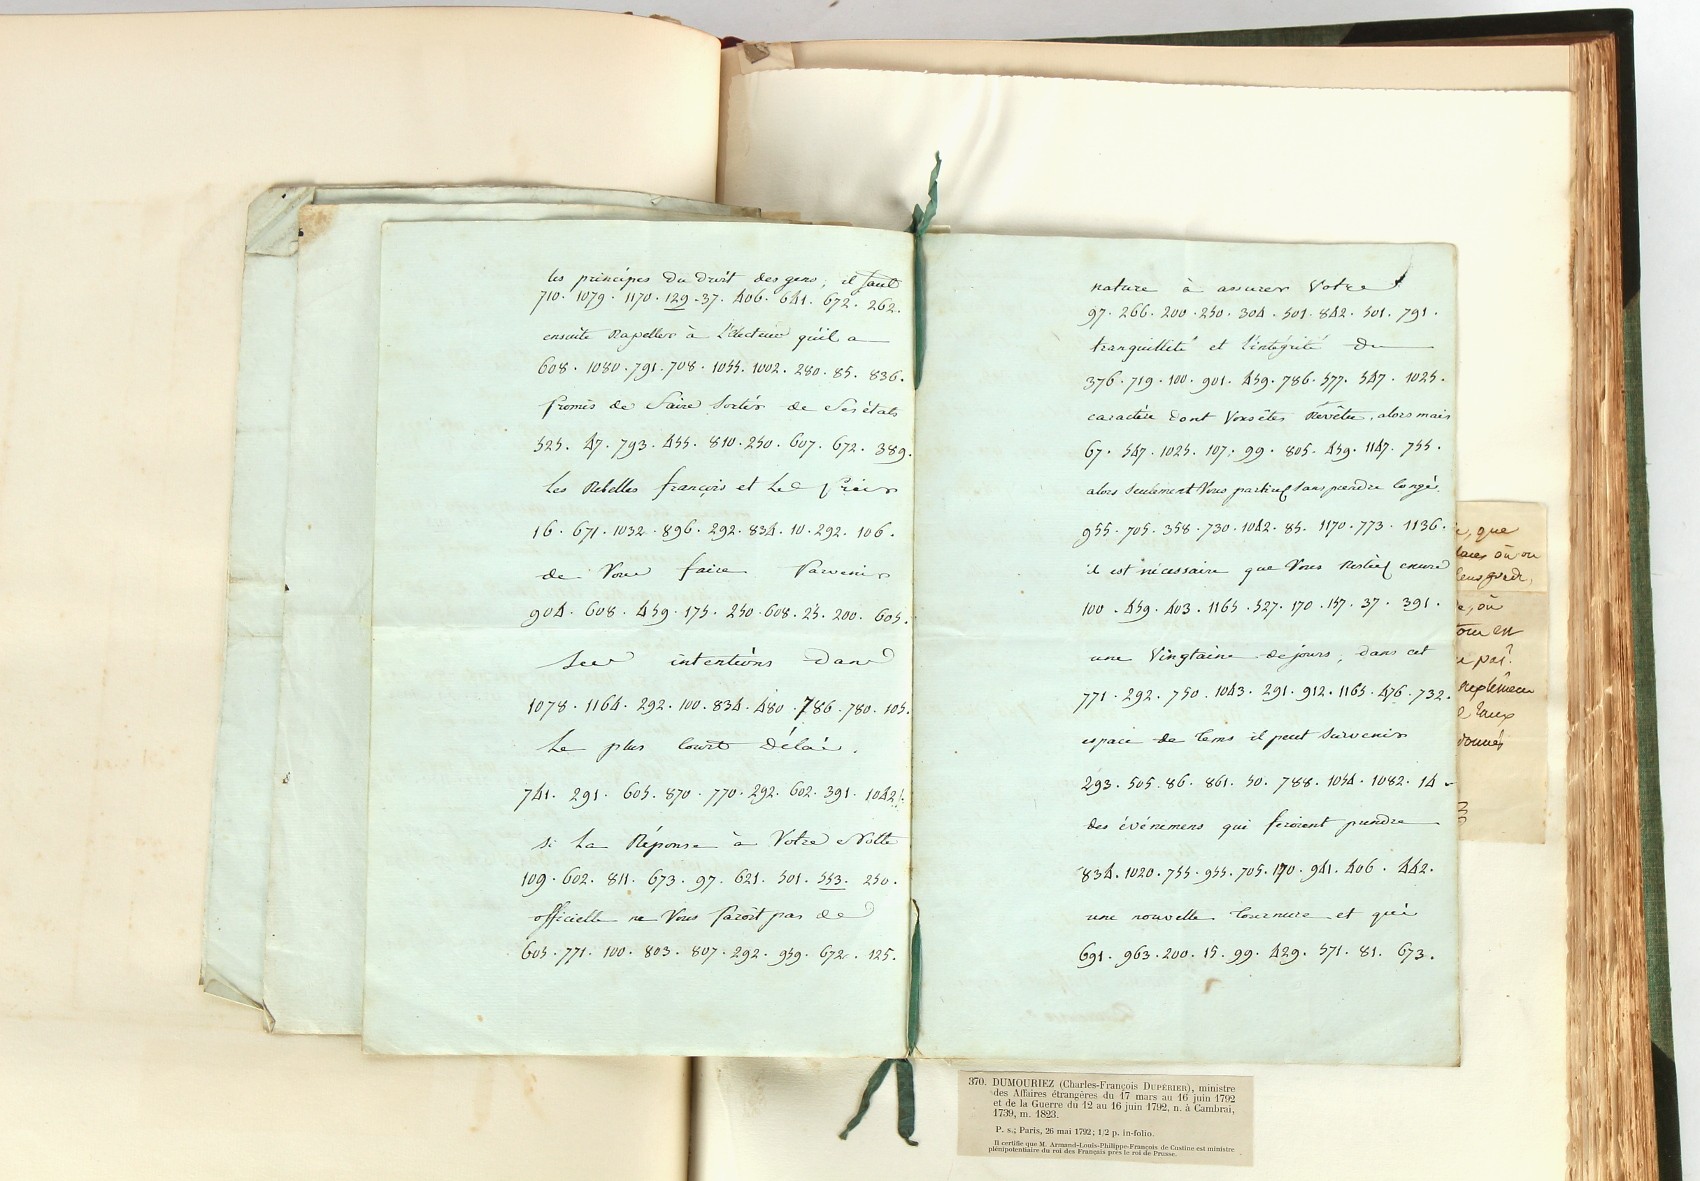 les principes du droit des gens, il faut
710. 1079. 1170. 129. 37. 406. 641. 672. 262.
ensuite Rapeller à l'électeur qu'il a
608. 1080. 791. 708. 1055. 1002. 280. 85. 836.
promis de faire sortir de ses états
525. 47. 793. 455. 810. 250. 607. 672. 389.
les Rebelles françois et les
16. 671. 1032. 896. 292. 834. 10. 292. 106.
de Vous faire Parvenir
904. 608. 459. 175. 250. 608. 25. 200. 605.
ses intentions dans
1078. 1164. 292. 100. 834. 480. 786. 780. 105.
le plus court délai.
741. 291. 605. 870. 770. 292. 602. 391. 1042.
si la Réponse à Votre Notte
109. 602. 811. 673. 97. 621. 501. 553. 250.
officielle ne Vous paroit pas de
605. 771. 100. 803. 807. 292. 959. 672. 125.
nature à assurer Votre
97. 266. 200. 250. 304. 501. 842. 501. 791.
tranquilleté et l'intégrité du
376. 719. 100. 901. 459. 786. 577. 547. 1025.
caractère dont Vous êtes Revêtu, alors mais
67. 547. 1025. 107. 99. 805. 459. 1147. 755.
alors seulement Vous partirez sans prendre congé.
955. 705. 358. 730. 1042. 85. 1170. 773. 1136.
il est nécessaire que Vous Restiez encore
100. 459. 403. 1165. 527. 170. 157. 37. 391.
une Vingtaine de jours, dans cet
771. 292. 750. 1043. 291. 912. 1165. 476. 732.
espace de tems il peut survenir
293. 505. 86. 861. 50. 788. 1054. 1082. 14
des événemens qui feroient prendre
834. 1020. 755. 955. 705. 170. 941. 406. 442.
une nouvelle tournure et qui
691. 963. 200. 15. 99. 429. 571. 81. 673.
que
où on
où
en
pas
donnés
370. DUMOURIEZ (Charles-François DUPÉRIER), ministre
des Affaires étrangères du 17 mars au 16 juin 1792
et de la Guerre du 12 au 16 juin 1792, n. à Cambrai,
1739, m. 1823.
P. s.; Paris, 26 mai 1792; 1/2 p. in-folio.
Il certifie que M. Armand-Louis-Philippe-François de Custine est ministre
plénipotentiaire du roi des Français près le roi de Prusse.